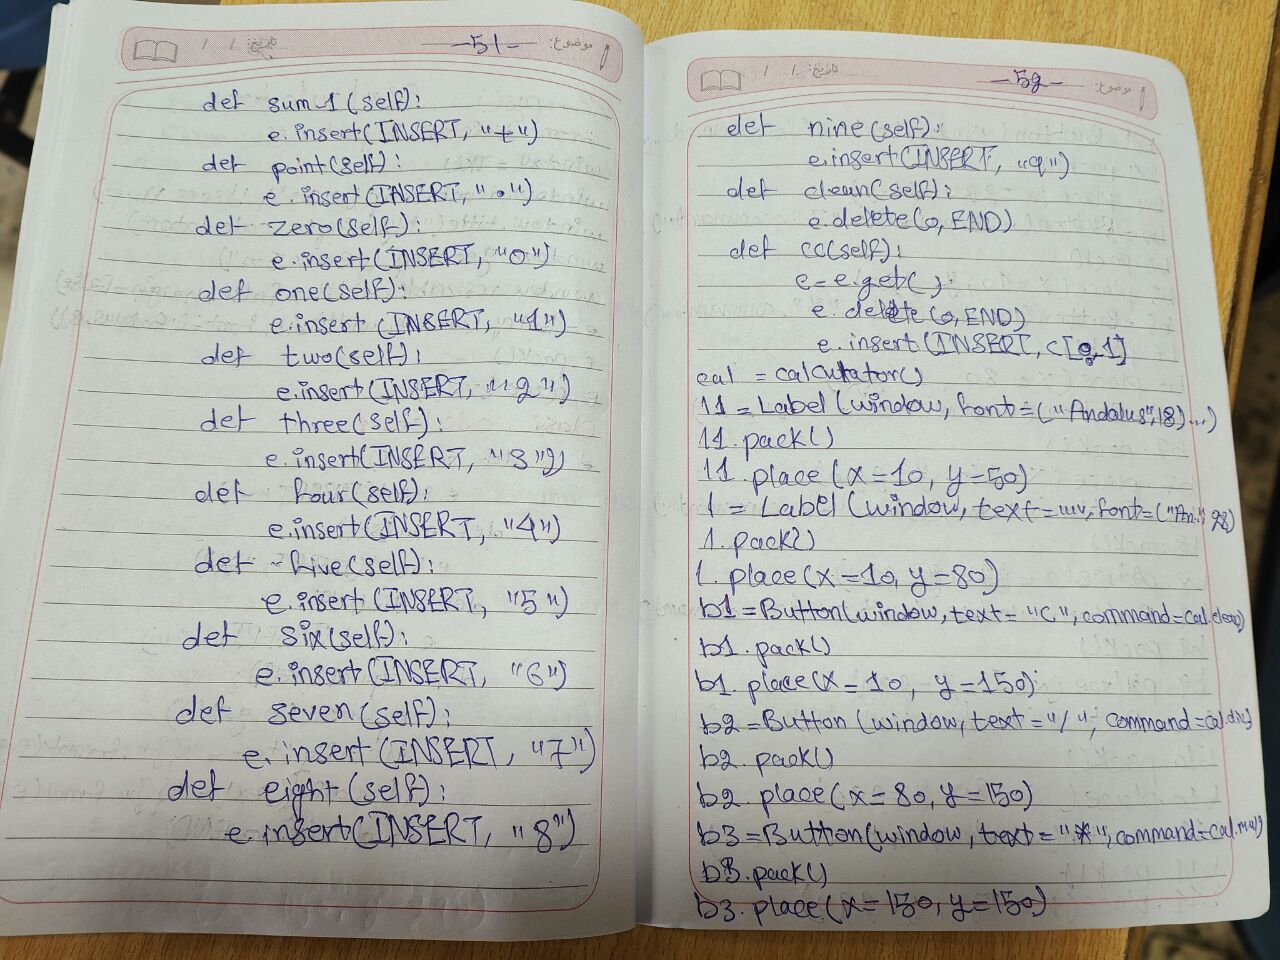 موضوع: -51- تاریخ: / /
def sum1(self):
e.insert(INSERT, "+")
def point(self):
e.insert(INSERT, ".")
def zero(self):
e.insert(INSERT, "0")
def one(self):
e.insert(INSERT, "1")
def two(self):
e.insert(INSERT, "2")
def three(self):
e.insert(INSERT, "3")
def four(self):
e.insert(INSERT, "4")
def five(self):
e.insert(INSERT, "5")
def six(self):
e.insert(INSERT, "6")
def seven(self):
e.insert(INSERT, "7")
def eight(self):
e.insert(INSERT, "8")
موضوع: -52- تاریخ: / /
def nine(self):
e.insert(INSERT, "9")
def clean(self):
e.delete(0, END)
def cc(self):
c=e.get();
e.delete(0, END)
e.insert(INSERT, c[0,1]
cal = calculator()
l1 = Label(window, font=("Andalus",18)...)
l1.pack()
l1.place(x=10, y=50)
l = Label(window, text="", font=("An.." 28)
l.pack()
l.place(x=10, y=80)
b1=Button(window, text= "C", command=cal.clean)
b1.pack()
b1.place(x=10, y=150)
b2=Button(window, text="/", command=cal.div)
b2.pack()
b2.place(x=80, y=150)
b3=Button(window, text="*", command=cal.mul)
b3.pack()
b3.place(x=150, y=150)